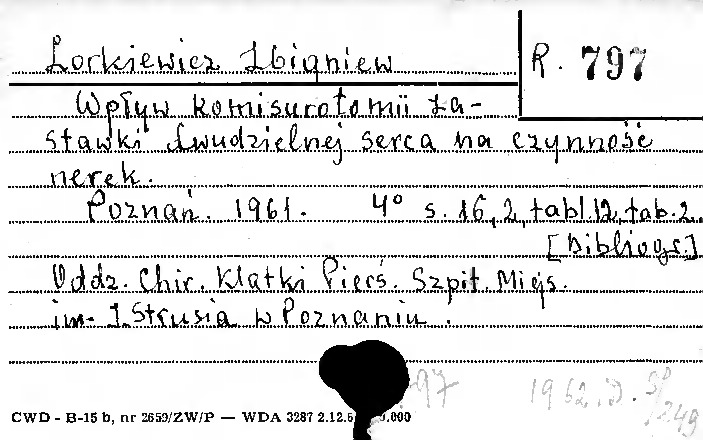 Lorkiewicz Zbigniew
R. 797
Wpływ komisurotomii za-
stawki dwudzielnej serca na czynność
nerek.
Poznań. 1961. 4° s. 16, 2, tabl. 12, tab. 2.
[Bibliogr.]
Oddz. Chir. Klatki Pierś. Szpit. Miejs.
im. J. Strusia w Poznaniu.
97 1962.D. 
/249
CWD - B-15 b, nr 2659/ZW/P — WDA 3287 2.12.